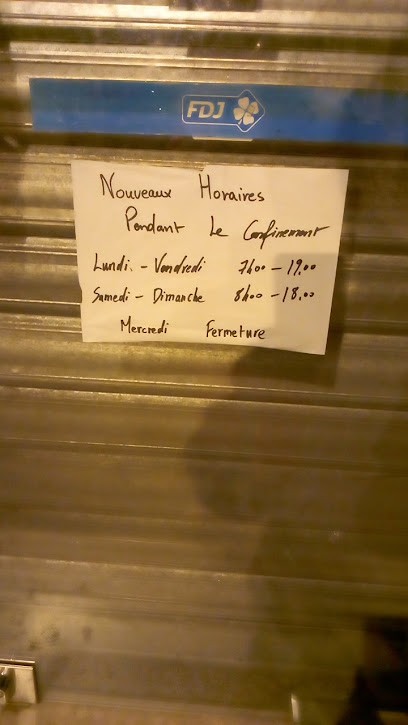 FDJ
Nouveaux Horaires
Pendant Le Confinement
Lundi. - Vendredi 7h00 - 19.00
Samedi - Dimanche 8h00 - 18.00
Mercredi Fermeture